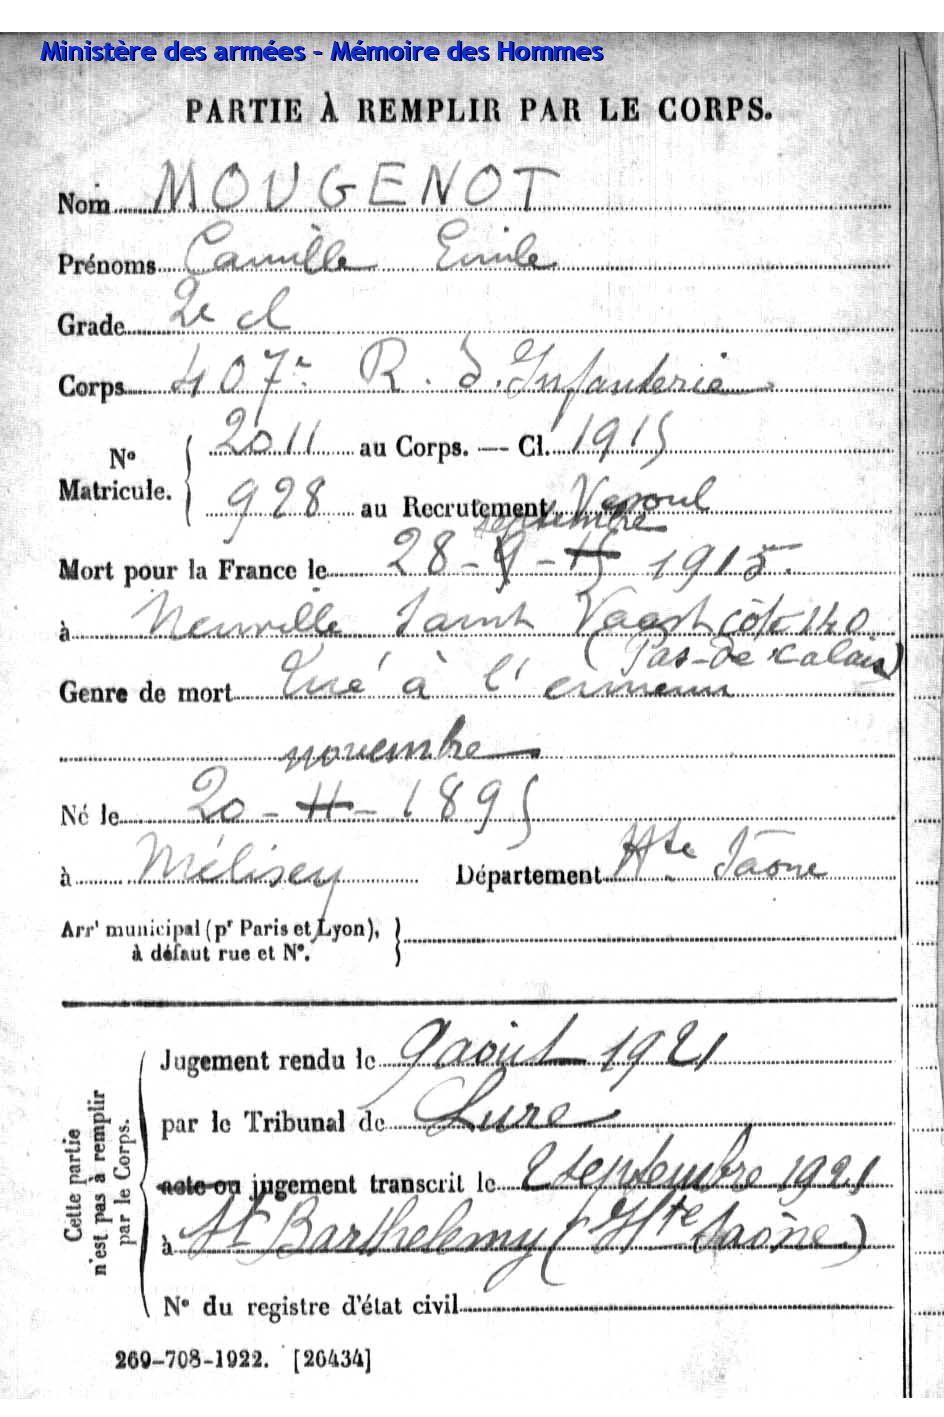 Ministère des armées - Mémoire des Hommes
PARTIE À REMPLIR PAR LE CORPS.
Nom MOUGENOT
Prénoms Camille Emile
Grade 2e cl
Corps 407e R. d'Infanterie
N° Matricule. { 2011 au Corps. — Cl. 1915
928 au Recrutement Vesoul
septembre
Mort pour la France le 28 - 9 - 15 1915.
à Neuville Saint Vaast côte 140
(Pas-de-Calais)
Genre de mort Tué à l'ennemi
novembre
Né le 20 - 11 - 1895
à Mélisey Département Hte Saône
Arrt municipal (pr Paris et Lyon),
à défaut rue et N°.
Cette partie
n'est pas à remplir
par le Corps.
Jugement rendu le 9 août 1921
par le Tribunal de Lure
acte ou jugement transcrit le 2 septembre 1921
à St Barthelemy (Hte Saône)
N° du registre d'état civil
269-708-1922. [26434]